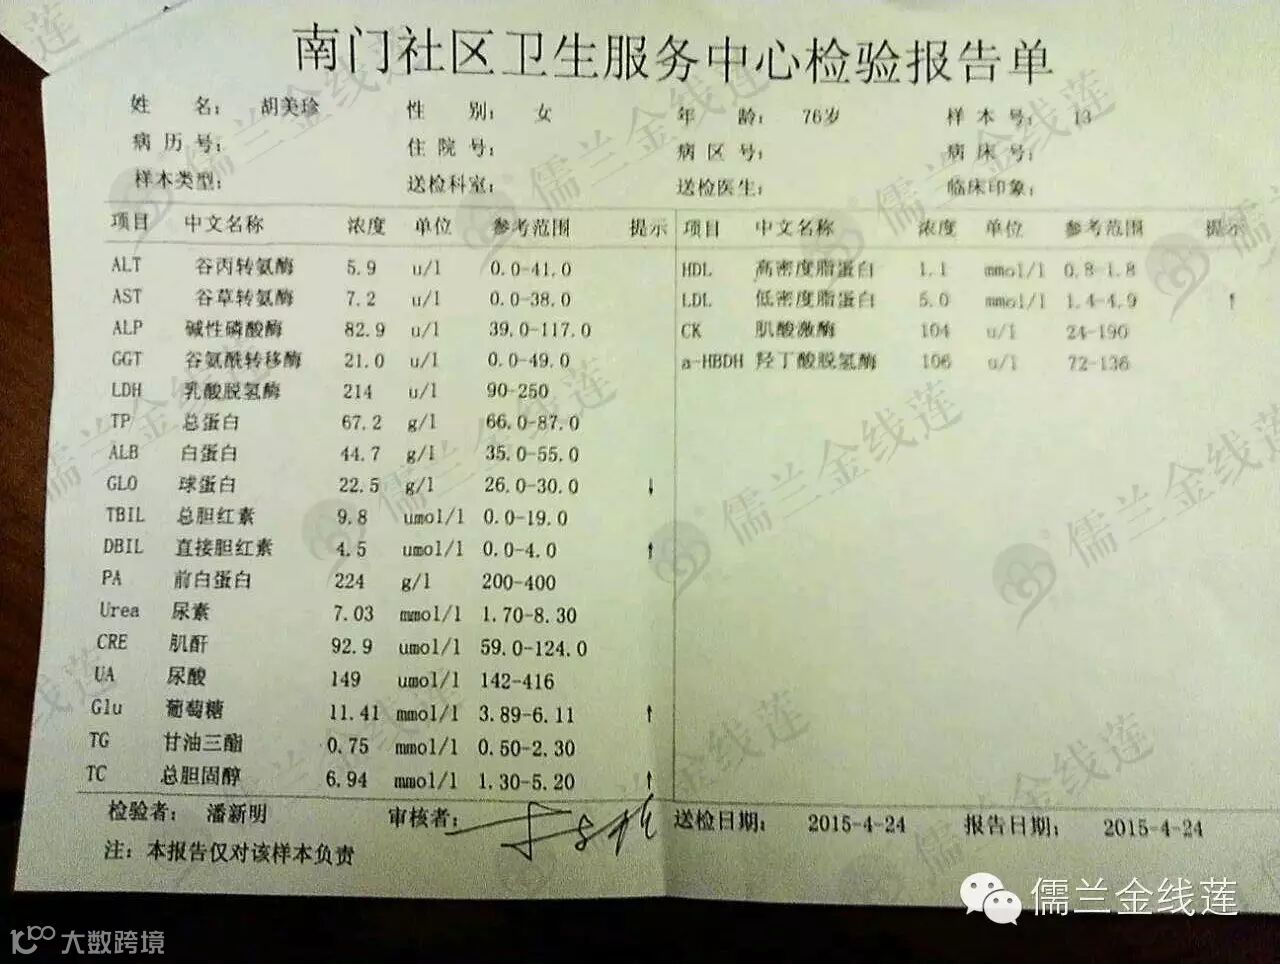 南门社区卫生服务中心检验报告单
姓 名： 胡美珍 性 别： 女 年 龄： 76岁 样 本 号： 13
病 历 号： 住 院 号： 病 区 号： 病 床 号：
样本类型： 送检科室： 送检医生： 临床印象：
项目 中文名称 浓度 单位 参考范围 提示 项目 中文名称 浓度 单位 参考范围 提示
ALT 谷丙转氨酶 5.9 u/l 0.0-41.0 HDL 高密度脂蛋白 1.1 mmol/l 0.8-1.8
AST 谷草转氨酶 7.2 u/l 0.0-38.0 LDL 低密度脂蛋白 5.0 mmol/l 1.4-4.9 ↑
ALP 碱性磷酸酶 82.9 u/l 39.0-117.0 CK 肌酸激酶 104 u/l 24-190
GGT 谷氨酰转移酶 21.0 u/l 0.0-49.0 a-HBDH 羟丁酸脱氢酶 106 u/l 72-136
LDH 乳酸脱氢酶 214 u/l 90-250
TP 总蛋白 67.2 g/l 66.0-87.0
ALB 白蛋白 44.7 g/l 35.0-55.0
GLO 球蛋白 22.5 g/l 26.0-30.0 ↓
TBIL 总胆红素 9.8 umol/l 0.0-19.0
DBIL 直接胆红素 4.5 umol/l 0.0-4.0 ↑
PA 前白蛋白 224 g/l 200-400
Urea 尿素 7.03 mmol/l 1.70-8.30
CRE 肌酐 92.9 umol/l 59.0-124.0
UA 尿酸 149 umol/l 142-416
Glu 葡萄糖 11.41 mmol/l 3.89-6.11 ↑
TG 甘油三酯 0.75 mmol/l 0.50-2.30
TC 总胆固醇 6.94 mmol/l 1.30-5.20 ↑
检验者： 潘新明 审核者： 送检日期： 2015-4-24 报告日期： 2015-4-24
注：本报告仅对该样本负责
儒兰金线莲
大数跨境